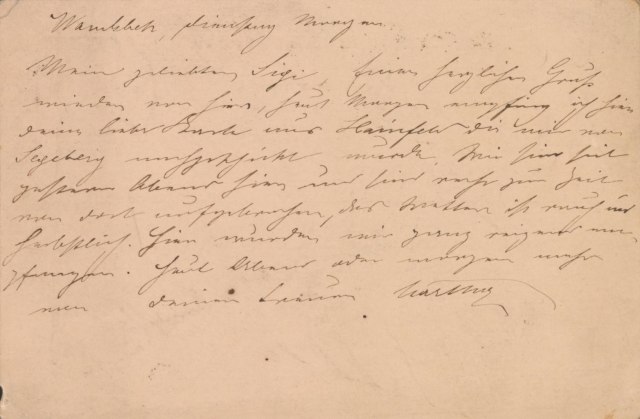 Wandsbek, Dienstag Morgen.
Mein geliebter Sigi, Einen herzlichen Gruß
von hier, heut Morgen empfing ich hier
deine liebe Karte aus Hainfeld die mir von
Segeberg nachgeschickt wurde. Wir sind seit
gestern Abend hier und sind recht zur Zeit
von dort aufgebrochen, das Wetter ist rauh und
herbstlich. Hier wurden wir ganz
Heut Abend oder morgen mehr
von deinem treuen